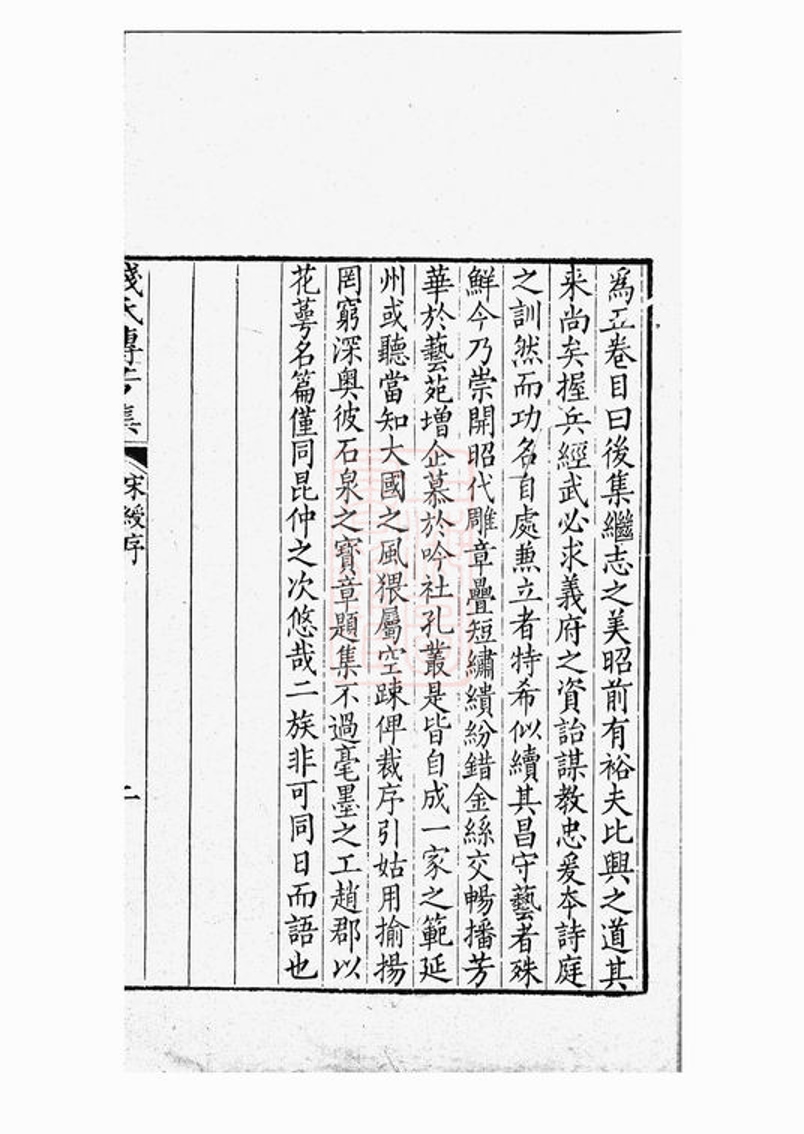 爲五卷目曰後集繼志之美昭前有裕夫比興之道其
來尚矣握兵經武必求義府之資詒謀教忠爰本詩庭
之訓然而功名自處兼立者特希似續其昌守藝者殊
鮮今乃崇開昭代雕章疊短繡繢紛錯金絲交暢播芳
華於藝苑增企慕於吟社孔叢是皆自成一家之範延
州或聽當知大國之風猥屬空踈俾裁序引姑用揄揚
罔窮深奧彼石泉之寶章題集不過毫墨之工趙郡以
花萼名篇僅同昆仲之次悠哉二族非可同日而語也
錢氏傳芳集
宋綬序
二